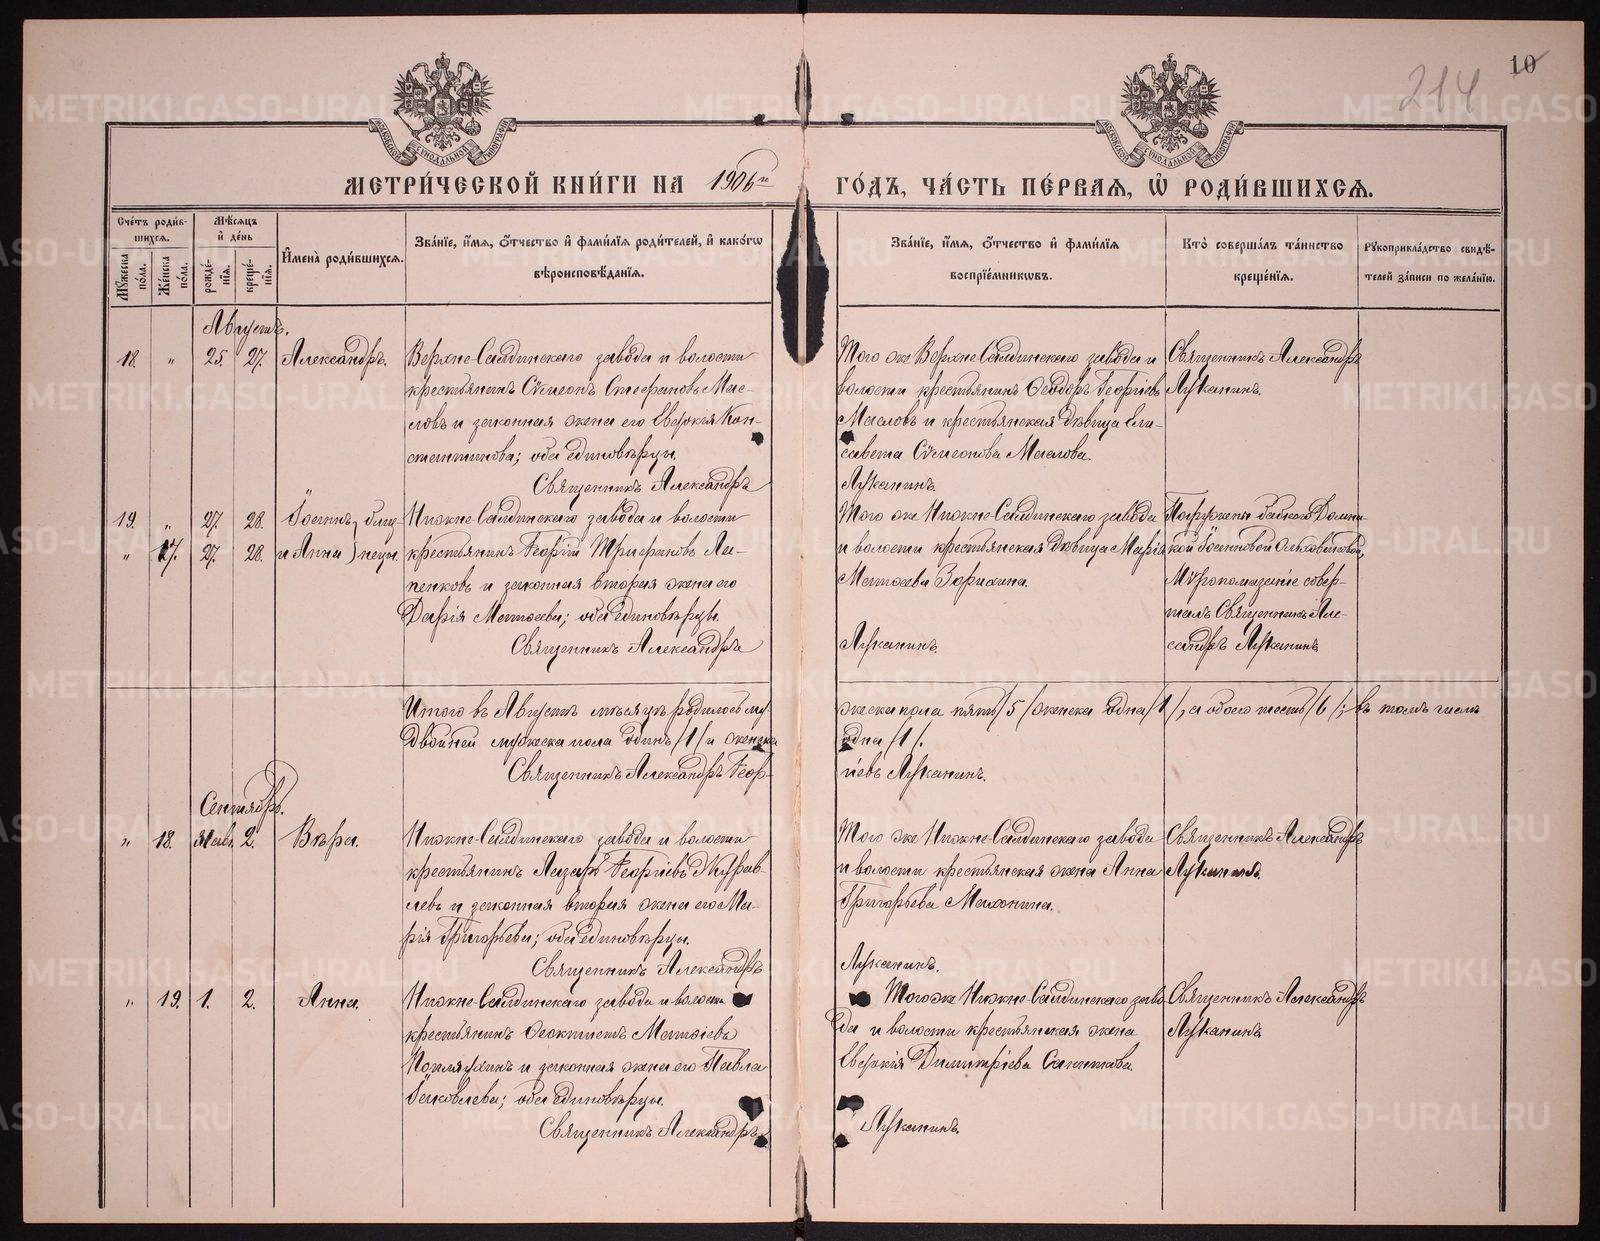 214 10
МЕТРИ́ЧЕСКОЙ КНИ́ГИ НА 1906й ГО́ДЪ, ЧА́СТЬ ПЕ́РВАѦ, Ѡ҆ РОДИ́ВШИХСѦ.
Сче́тъ роди́в-
шихсѧ.
Мꙋ́жеска по́ла.
Же́нска по́ла.
Мѣ́сѧцъ и҆ де́нь
рожде́-
нїѧ.
креще́-
нїѧ.
И҆мена̀ роди́вшихсѧ.
Зва́нїе, и҆́мѧ, ѻ҆́тчество и҆ фами́лїѧ роди́телей, и҆ како́гѡ
вѣроисповѣ́данїѧ.
Зва́нїе, и҆́мѧ, ѻ҆́тчество и҆ фами́лїѧ
воспрїе́мникѡвъ.
Кто̀ соверша́лъ та́инство
креще́нїѧ.
Рꙋкоприкла́дство свидѣ́-
телей за́писи по жела́нїю.
Августъ.
18. " 25 27. Александръ.
Верхне-Салдинскаго завода и волости
крестьянинъ Сѵмеонъ Стефановъ Мас-
ловъ и законная жена его Евдокія Кон-
стантинова; оба единовѣрцы.
Священникъ Александръ
Того же Верхне-Салдинскаго завода и
волости крестьянинъ Ѳеодоръ Георгіевъ
Масловъ и крестьянская дѣвица Ели-
савета Сѵмеонова Маслова.
Луканинъ.
Священникъ Александръ
Луканинъ.
19. " 27. 28. Іоаннъ } близ-
" 17. 27. 28. и Анна } нецы.
Нижне-Салдинскаго завода и волости
крестьянинъ Георгій Трифановъ Ла-
пенковъ и законная вторая жена его
Дарія Матѳеева; оба единовѣрцы.
Священникъ Александръ
Того же Нижне-Салдинскаго завода
и волости крестьянская дѣвица Марія
Матѳеева Зорихина.
Луканинъ.
Погружены бабкою Домни-
кой Іоанновой
Мѵропомазаніе совер-
шалъ Священникъ Але-
сандръ Луканинъ
Итого въ Августѣ мѣсяцѣ родилось му-
жеска пола пять /5/ женска одна /1/, а обоего шесть /6/; въ томъ числѣ
двойней мужеска пола одинъ /1/ и женска
одна /1/.
Священникъ Александръ Геор-
гіевъ Луканинъ.
Сентябрь.
" 18. 2. Вѣра.
Нижне-Салдинскаго завода и волости
крестьянинъ Лазарь Георгіевъ Журав-
левъ и законная вторая жена его Ма-
рія Григорьева; оба единовѣрцы.
Священникъ Александръ
Того же Нижне-Салдинскаго завода
и волости крестьянская жена Анна
Григорьева Махонина.
Луканинъ.
Священникъ Александръ
Луканинъ.
" 19. 1. 2. Анна.
Нижне-Салдинскаго завода и волости
крестьянинъ Ѳеоктистъ Матѳіевъ
и законная жена его Павла
Іаковлева; оба единовѣрцы.
Священникъ Александръ
Того же Нижне-Салдинскаго заво-
да и волости крестьянская жена
Евдокія Димитріева
Луканинъ.
Священникъ Александръ
Луканинъ
METRIKI.GASO-URAL.RU